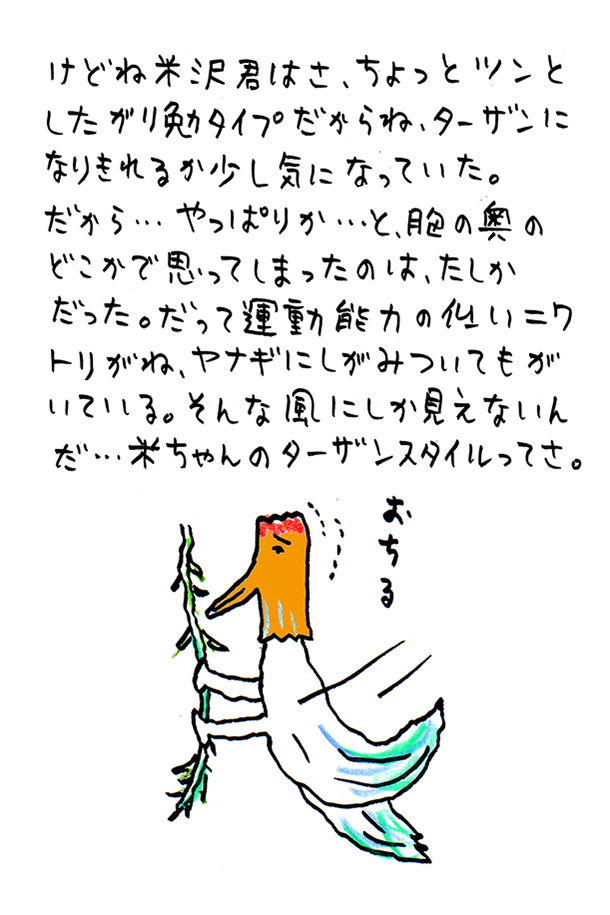 けどね米沢君はさ、ちょっとツンと
したガリ勉タイプだからね、ターザンに
なりきれるか少し気になっていた。
だから…やっぱりか…と、胸の奥の
どこかで思ってしまったのは、たしか
だった。だって運動能力の低いニワ
トリがね、ヤナギにしがみついてもが
いている。そんな風にしか見えないん
だ…米ちゃんのターザンスタイルってさ。
おちる